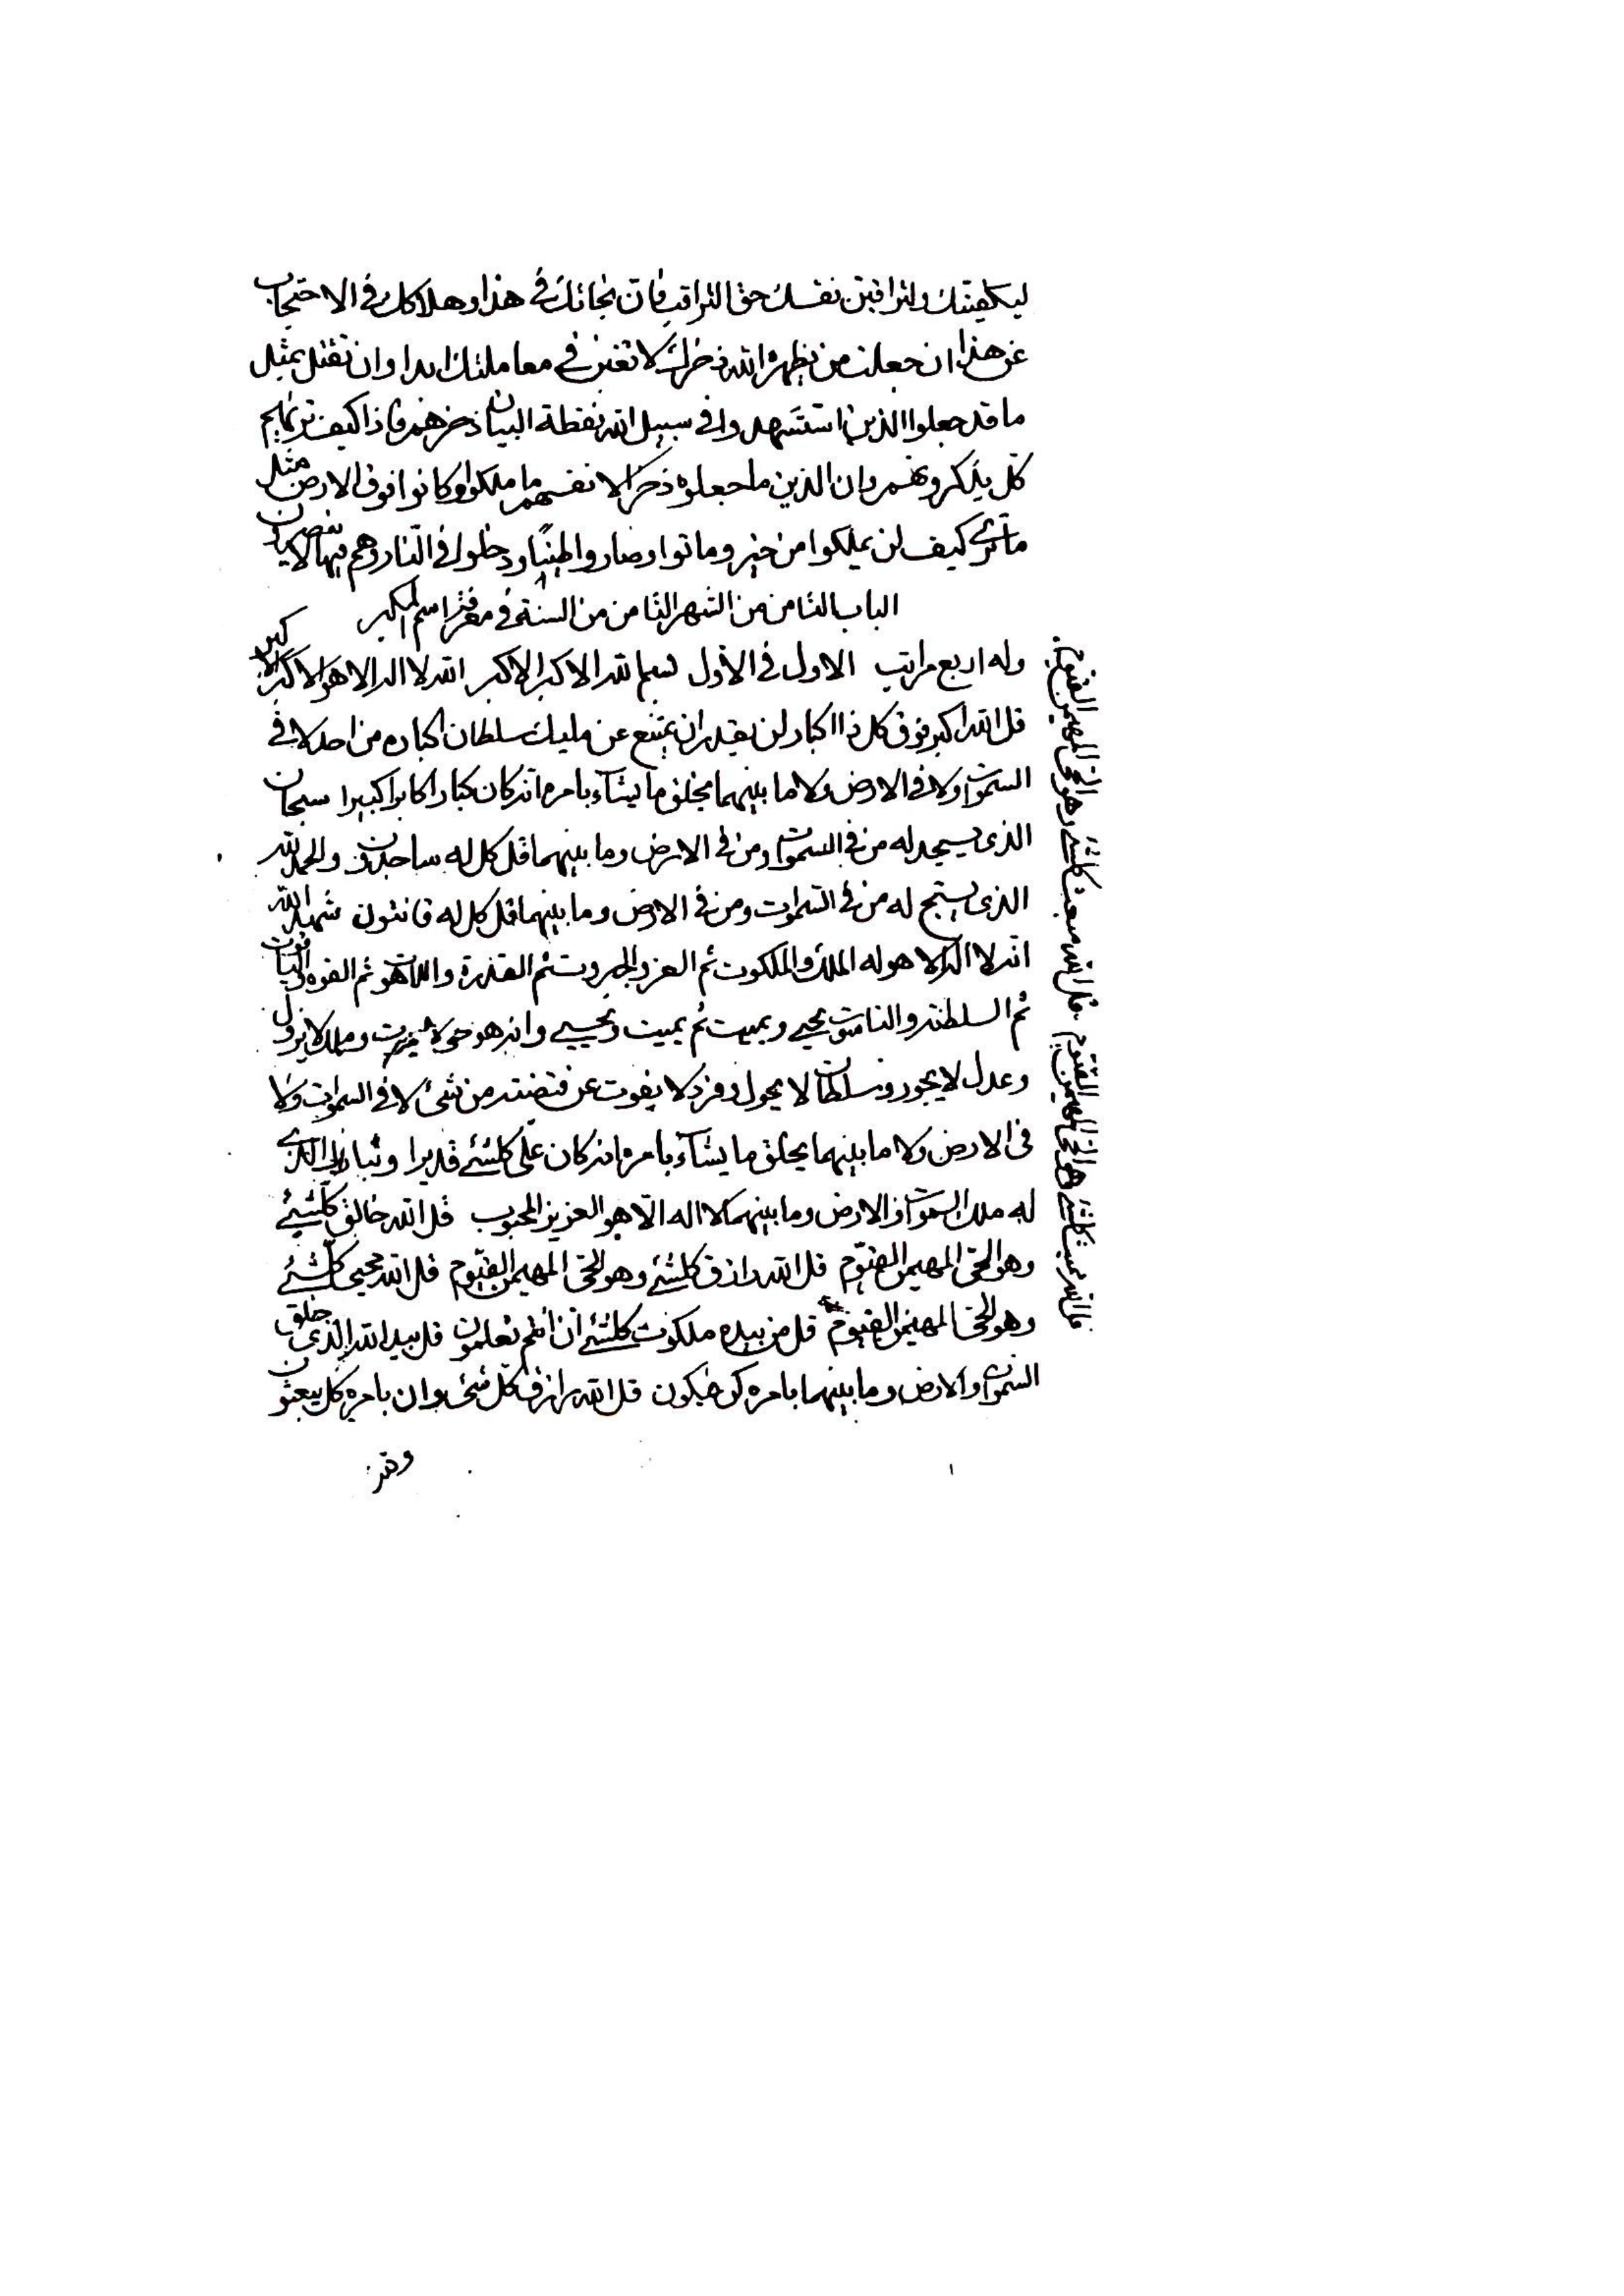 ليكفينك ولتراقبن نفسك حق التراقب فان نجاتك في هذا وهلاكك في الاحتجاب
عن هذا ان جعلت من يظهره الله ذخرك لا تغبن في معاملتك ابدا وان تقتل بمثل
ما قد جعلوا الذين استشهدوا في سبيل الله نقطة البيان ذخرهم فاذا كيف تريهم
كل يذكرونهم وان الذين ما جعلوه ذخرا لانفسهم ما ملكوا وكانوا فوق الارض مثل
ما ترى كيف لن يملكوا من خير وماتوا وصاروا طينا ودخلوا في النار وهم فيها لا ينصرون
الباب الثامن من الشهر الثامن من السنة في معرفة اسم المكبر
وله اربع مراتب الاول في الاول بسم الله الاكبر الاكبر الله لا اله الا هو الاكبر الاكبر
قل الله اكبر فوق كل ذا اكبار لن يقدر ان يمتنع عن مليك سلطان اكباره من احد لا في
السموات ولا في الارض ولا ما بينهما يخلق ما يشآء بامره انه كان كبارا كابرا كبيرا سبحان
الذي يسجد له من في السموات ومن في الارض وما بينهما قل كل له ساجدون والحمد لله
الذي يسبح له من في السموات ومن في الارض وما بينهما قل كل له قانتون شهد الله
انه لا اله الا هو له الملك والملكوت ثم العز والجبروت ثم القدرة واللاهوت ثم القوة والياقوت
ثم السلطنة والناسوت يحيي ويميت ثم يميت ويحيي وانه هو حي لا يموت وملك لا يزول
وعدل لا يجور وسلطان لا يحول وفرد لا يفوت عن قبضته من شئ لا في السموات ولا
في الارض ولا ما بينهما يخلق ما يشآء بامره انه كان على كلشئ قديرا وتبارك الذي
له ملك السموات والارض وما بينهما لا اله الا هو العزيز المحبوب قل الله خالق كلشئ
وهو الحي المهيمن القيوم قل الله رازق كلشئ وهو الحي المهيمن القيوم قل الله محيي كلشئ
وهو الحي المهيمن القيوم قل من بيده ملكوت كلشئ ان انتم تعلمون قل بيد الله الذي خلق
السموات والارض وما بينهما بامره كن فيكون قل الله رازق كل شئ وان بامره كل يبعثون
قل الله مميت كلشئ وهو الحي المهيمن القيوم قل الله مبعث كلشئ وهو الحي المهيمن القيوم